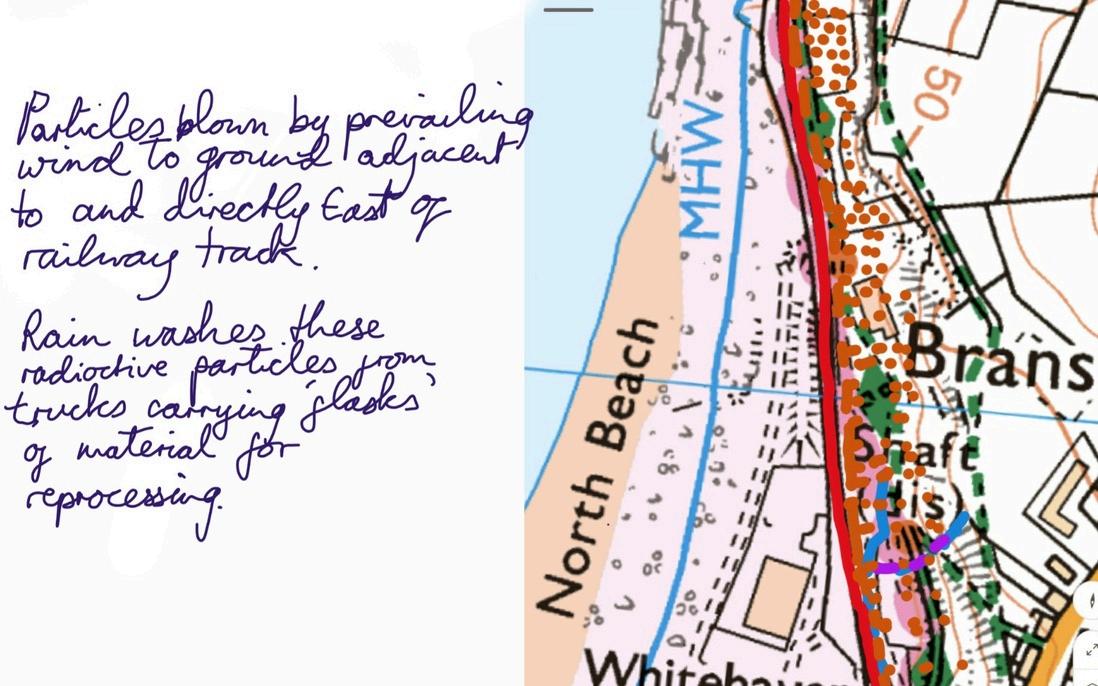 Particles blown by prevailing
wind to ground adjacent
to and directly East of
railway track.
Rain washes these
radioctive particles from
trucks carrying 'flasks'
of material for
reprocessing.
MHW
50
North Beach
Brans
Shaft
(dis)
Whitehaven